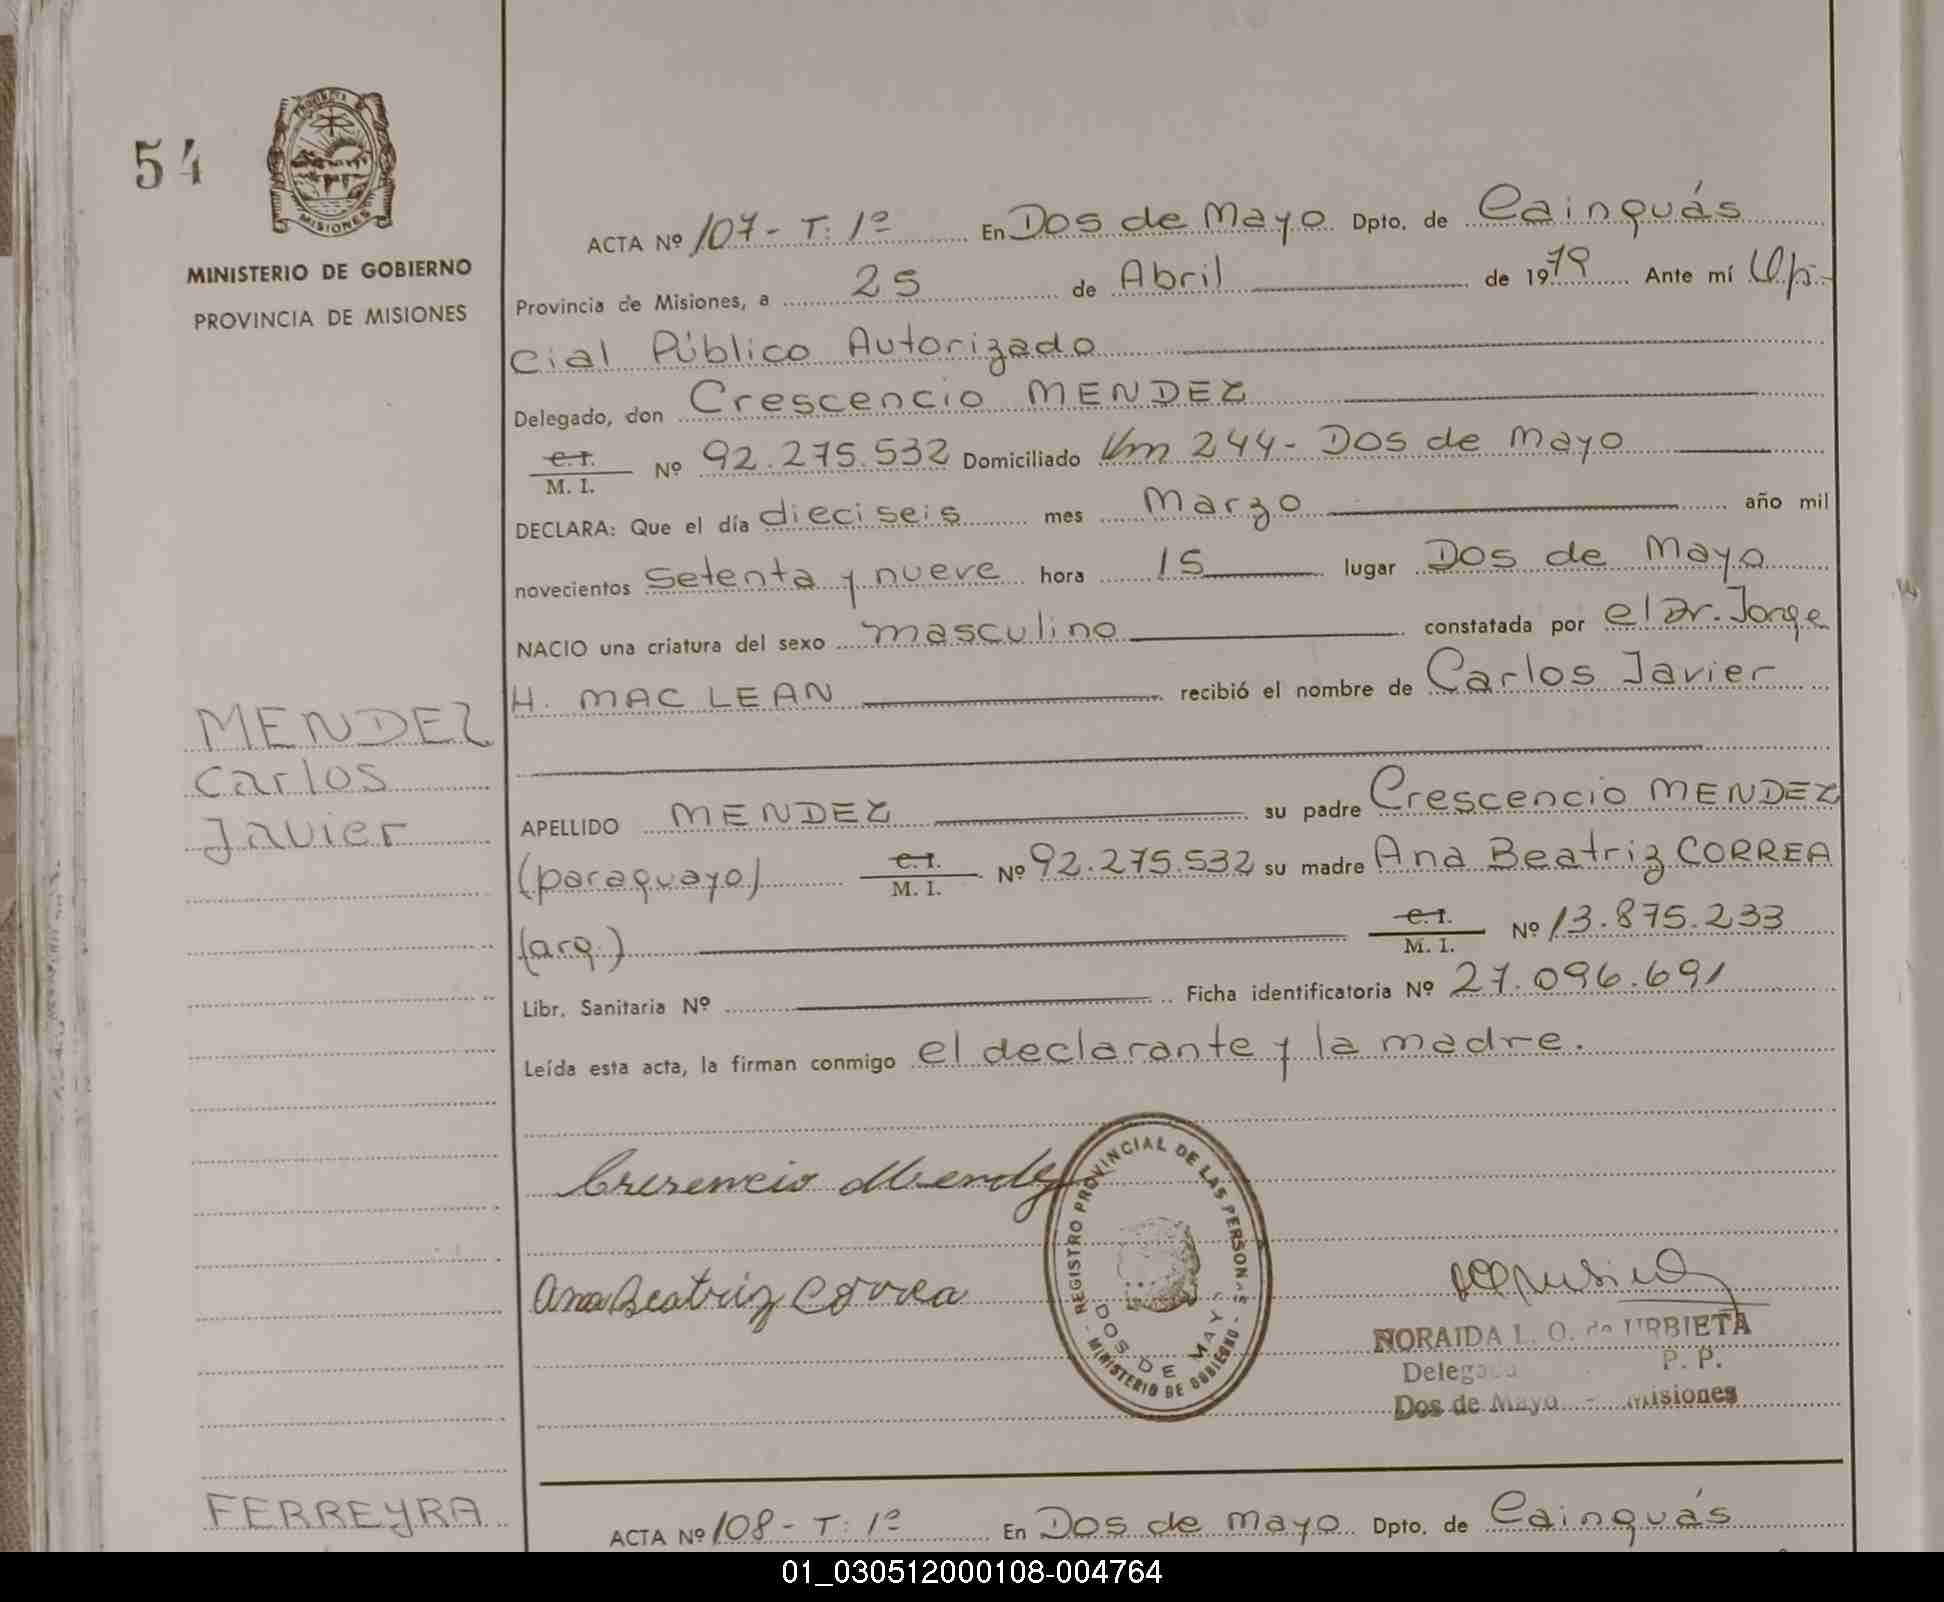 54
PROVINCIA
MISIONES
MINISTERIO DE GOBIERNO
PROVINCIA DE MISIONES
ACTA Nº 107 - T: 1º En Dos de Mayo Dpto. de Cainguás
Provincia de Misiones, a 25 de Abril de 1979 Ante mí Ofi-
cial Público Autorizado
Delegado, don Crescencio MENDEZ
C. I.
M. I. Nº 92.275.532 Domiciliado Km 244 - Dos de Mayo
DECLARA: Que el día dieciseis mes Marzo año mil
novecientos setenta y nueve hora 15 lugar Dos de Mayo
NACIO una criatura del sexo masculino constatada por el Dr. Jorge
H. MAC LEAN recibió el nombre de Carlos Javier
MENDEZ
Carlos
Javier
APELLIDO MENDEZ su padre Crescencio MENDEZ
(paraguayo) C. I.
M. I. Nº 92.275.532 su madre Ana Beatriz CORREA
(arg.) C. I.
M. I. Nº 13.875.233
Libr. Sanitaria Nº Ficha identificatoria Nº 27.096.691
Leída esta acta, la firman conmigo el declarante y la madre.
Crescencio Mendez
Ana Beatriz Correa
REGISTRO PROVINCIAL DE LAS PERSONAS
DOS DE MAYO
- MINISTERIO DE GOBIERNO -
NORAIDA L. O. de URBIETA
Delegada P. P.
Dos de Mayo - Misiones
FERREYRA
ACTA Nº 108 - T: 1º En Dos de Mayo Dpto. de Cainguás
01_030512000108-004764